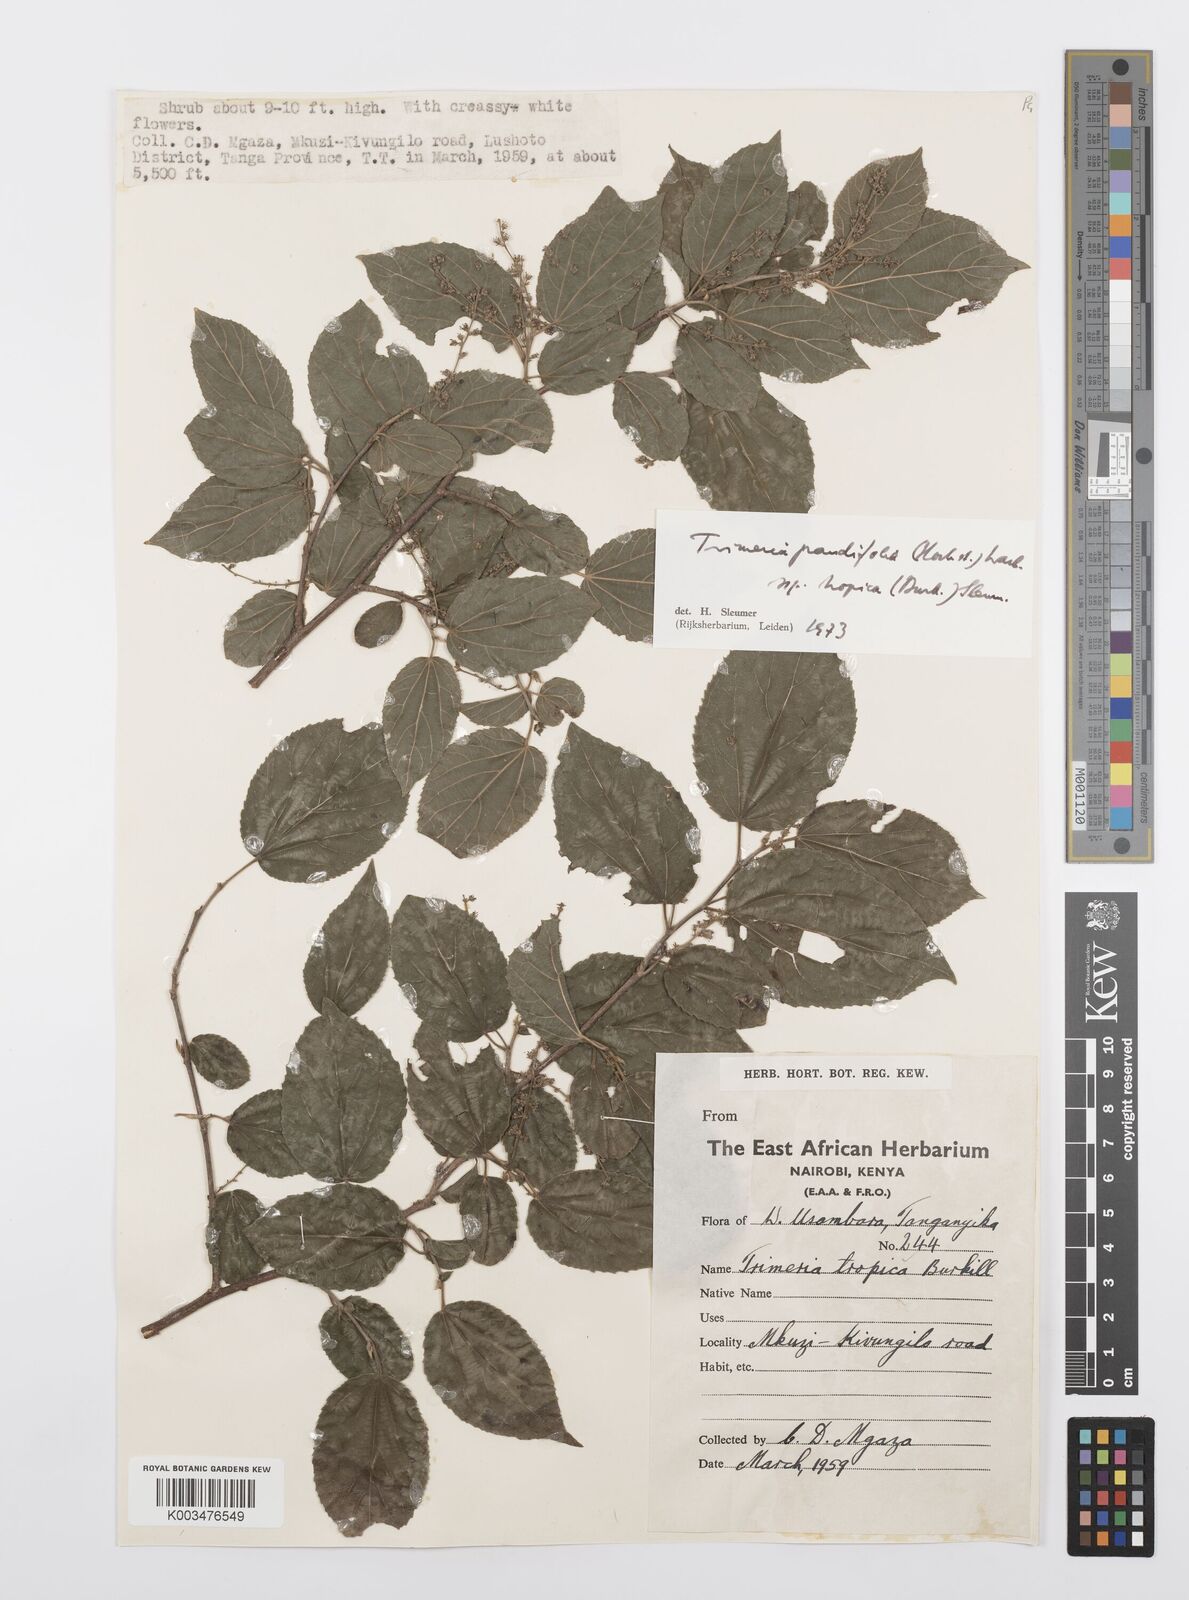 Shrub about 9-10 ft. high. With creassy- white
flowers.
Coll. C.D. Mgaza, Mkuzi-Kivungilo road, Lushoto
District, Tanga Province, T.T. in March, 1959, at about
5,500 ft.
Trimeria grandifolia (Hochst.) Warb.
ssp. tropica (Burk.) Sleum.
det. H. Sleumer
(Rijksherbarium, Leiden) 1973
HERB. HORT. BOT. REG. KEW.
From
The East African Herbarium
NAIROBI, KENYA
(E.A.A. & F.R.O.)
Flora of W. Usambara, Tanganyika
No. 244
Name Trimeria tropica Burkill
Native Name
Uses
Locality Mkuzi - Kivungilo road
Habit, etc.
Collected by C. D. Mgaza
Date March, 1959
ROYAL BOTANIC GARDENS KEW
K003476549
inches
centimeters
Don Williams
Density
M001120
Royal Botanic Gardens
Kew
0 1 2 3 4 5 6 7 8 9 10
cm
copyright reserved